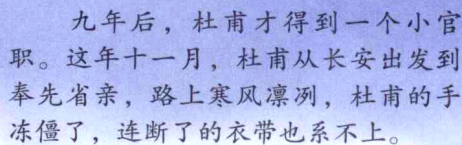 九年后，杜甫才得到一个小官
职。这年十一月，杜甫从长安出发到
奉先省亲，路上寒风凛冽，杜甫的手
冻僵了，连断了的衣带也系不上。